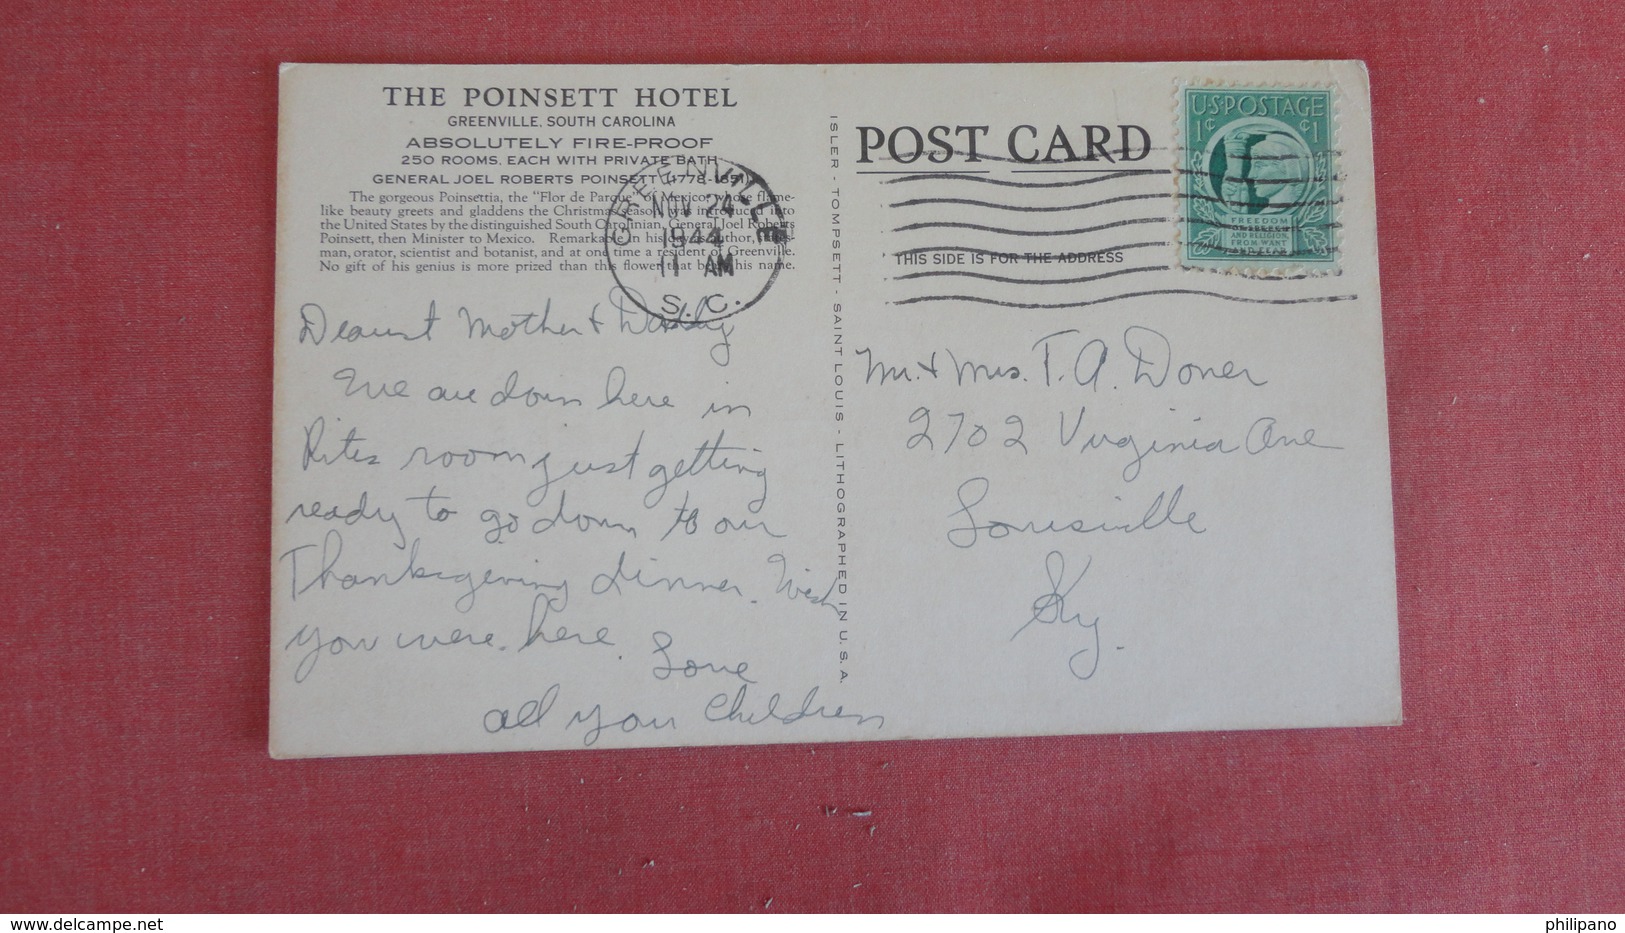 THE POINSETT HOTEL
GREENVILLE, SOUTH CAROLINA
ABSOLUTELY FIRE-PROOF
250 ROOMS, EACH WITH PRIVATE BATH
GENERAL JOEL ROBERTS POINSETT (1778-1851)
The gorgeous Poinsettia, the "Flor de Parque" of Mexico, whose flame-
like beauty greets and gladdens the Christmas season, was introduced into
the United States by the distinguished South Carolinian, General Joel Roberts
Poinsett, then Minister to Mexico. Remarkable in his day as author, states-
man, orator, scientist and botanist, and at one time a resident of Greenville.
No gift of his genius is more prized than this flower that bears his name.
GREENVILLE
NOV 24
1944
11 AM
S. C.
Dearest Mother & Daddy
We are down here in
Rites room just getting
ready to go down to our
Thanksgiving dinner. Wish
you were here.
Love
all your children
ISLER - TOMPSETT - SAINT LOUIS - LITHOGRAPHED IN U. S. A.
POST CARD
THIS SIDE IS FOR THE ADDRESS
U·S·POSTAGE
1¢ ¢1
FREEDOM
OF SPEECH
AND RELIGION,
FROM WANT
AND FEAR
Mr. & Mrs. T. A. Doner
2702 Virginia Ave
Louisville
Ky.
delcampe.net
philipano